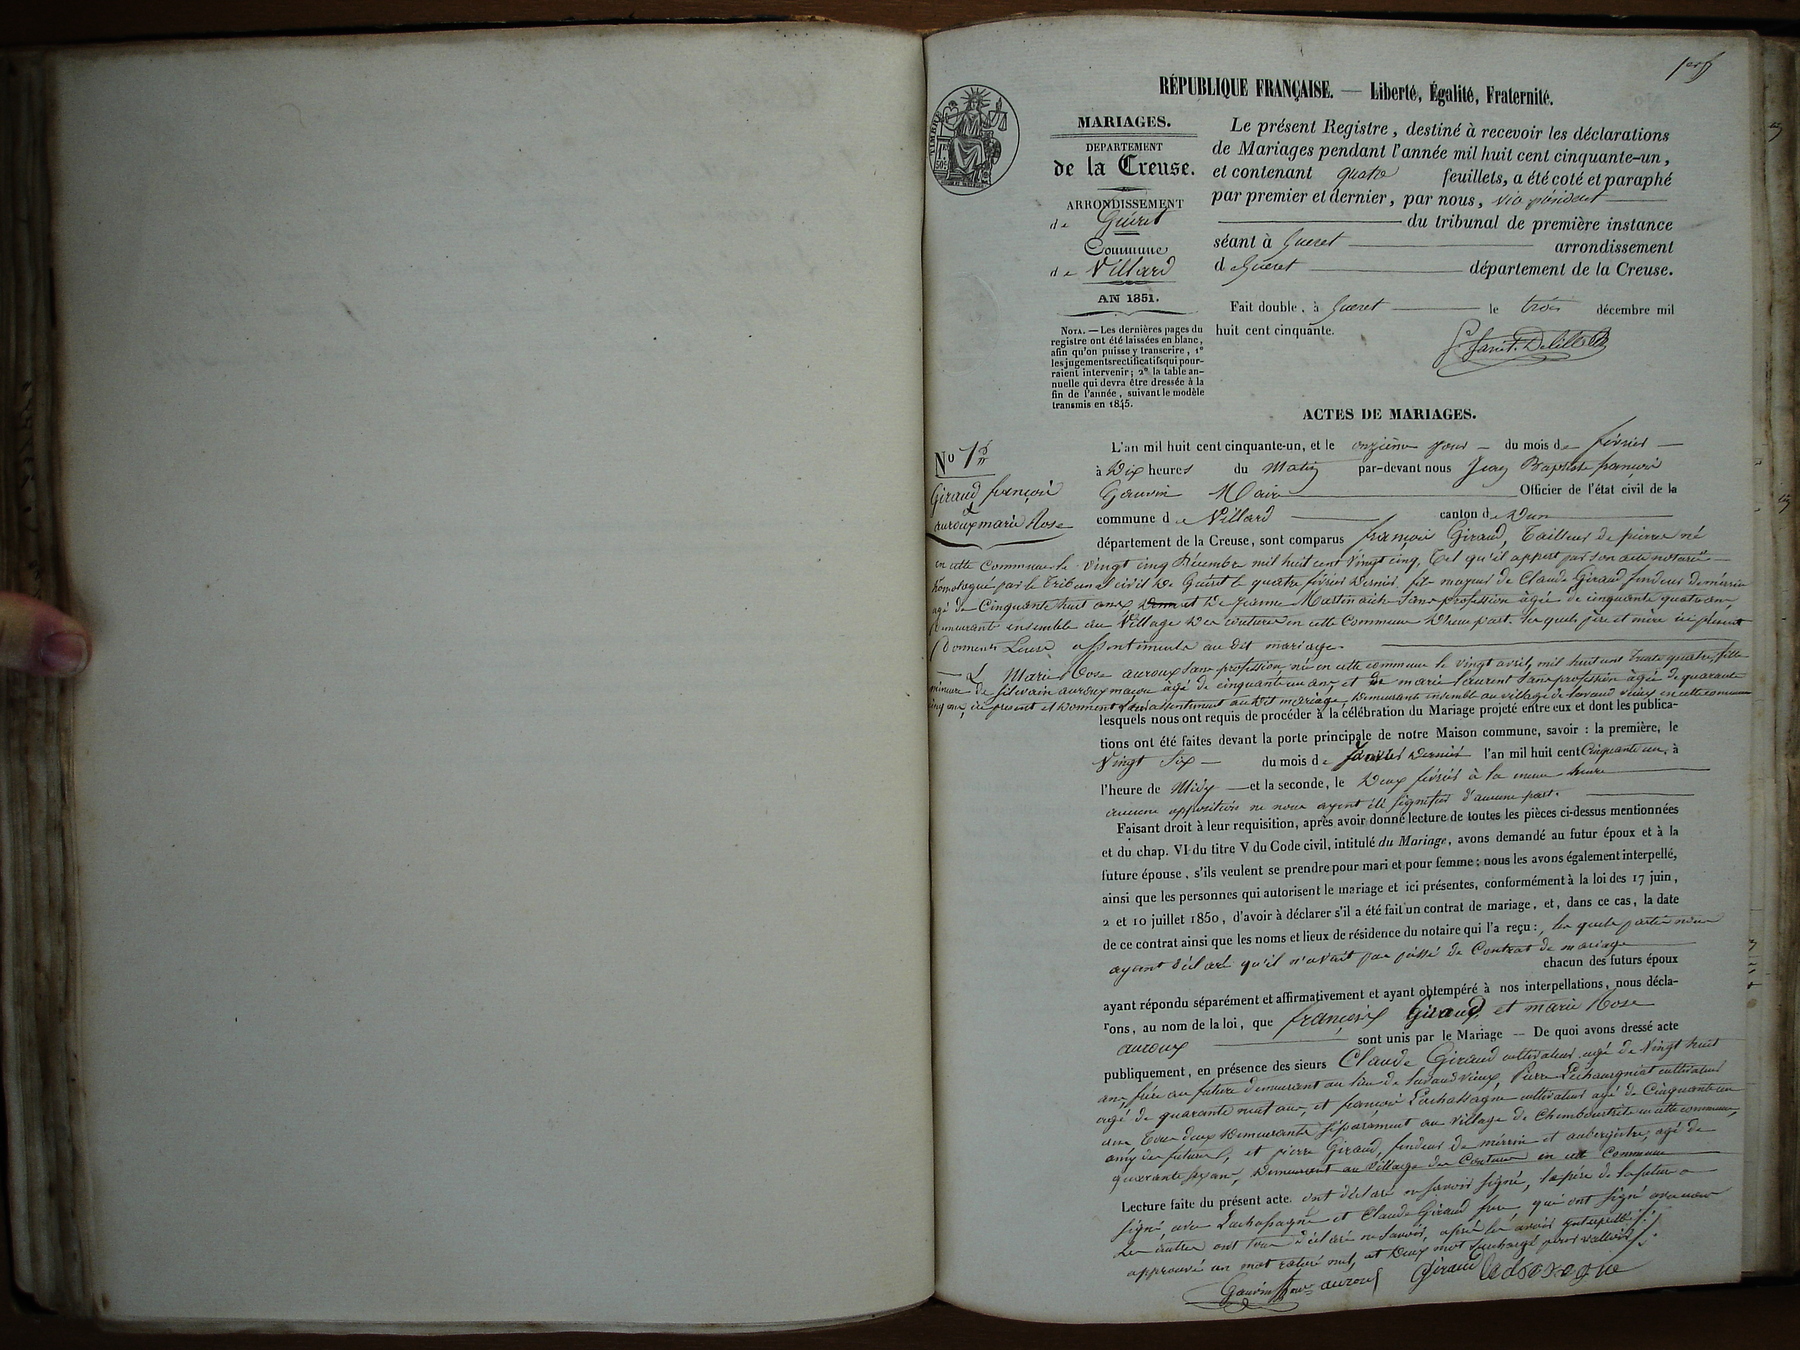 RÉPUBLIQUE FRANÇAISE. — Liberté, Égalité, Fraternité.
TIMBRE
MARIAGES.
DEPARTEMENT
de la Creuse.
ARRONDISSEMENT
de Guéret
Commune
de Villard
AN 1851.
NOTA. — Les dernières pages du
registre ont été laissées en blanc,
afin qu'on puisse y transcrire, 1°
les jugements rectificatifs qui pour-
raient intervenir; 2° la table an-
nuelle qui devra être dressée à la
fin de l'année, suivant le modèle
transmis en 1845.
Le présent Registre, destiné à recevoir les déclarations
de Mariages pendant l'année mil huit cent cinquante-un,
et contenant quatre feuillets, a été coté et paraphé
par premier et dernier, par nous, vice président
du tribunal de première instance
séant à Gueret arrondissement
de Gueret département de la Creuse.
Fait double, à Gueret le trois décembre mil
huit cent cinquante.
ACTES DE MARIAGES.
N° 1er
Giraud françois
&
auroux marie Rose
L'an mil huit cent cinquante-un, et le onzième jour du mois de février
à Dix heures du Matin par-devant nous Jean Baptiste françois
Gauvin Maire Officier de l'état civil de la
commune de Villard canton de Dun
département de la Creuse, sont comparus françois Giraud, Tailleur de pierre né
en cette Commune le vingt cinq Décembre mil huit cent vingt cinq, Tel qu'il appert par son acte notarié
homologué par le Tribunal civil de Guéret le quatre février dernier, fils majeur de Claude Giraud fendeur de mérin
agé de Cinquante huit ans, et de Jeanne Martin sans profession âgée de cinquante quatre ans,
Demeurants ensemble au Village des coutures en cette Commune D'une part. les quels père et mère ici présents
Donnent Leurs assentiments au dit mariage.
Et Marie Rose auroux sans profession née en cette commune le vingt avril, mil huit cent trente quatre, fille
mineure de silvain auroux maçon âgé de cinquante un ans, et de marie Laurent sans profession âgée de quarante
cinq ans, ici présent et donnent leurs assentiment au dit mariage, Demeurants ensemble au village de Lavaud vieux en cette commune
lesquels nous ont requis de procéder à la célébration du Mariage projeté entre eux et dont les publica-
tions ont été faites devant la porte principale de notre Maison commune, savoir : la première, le
Vingt Six du mois de Janvier Dernier l'an mil huit cent Cinquante un, à
l'heure de Midy et la seconde, le Deux février à la meme heure
aucune opposition ne nous ayent été signifiée d'aucune part.
Faisant droit à leur requisition, après avoir donné lecture de toutes les pièces ci-dessus mentionnées
et du chap. VI du titre V du Code civil, intitulé du Mariage, avons demandé au futur époux et à la
future épouse, s'ils veulent se prendre pour mari et pour femme : nous les avons également interpellé,
ainsi que les personnes qui autorisent le mariage et ici présentes, conformément à la loi des 17 juin,
2 et 10 juillet 1850, d'avoir à déclarer s'il a été fait un contrat de mariage, et, dans ce cas, la date
de ce contrat ainsi que les noms et lieux de résidence du notaire qui l'a reçu :, les quels parties nous
ayant déclaré qu'il n'avait pas passé de Contrat de mariage
chacun des futurs époux
ayant répondu séparément et affirmativement et ayant obtempéré à nos interpellations, nous décla-
rons, au nom de la loi, que françois Giraud, et marie Rose
auroux sont unis par le Mariage — De quoi avons dressé acte
publiquement, en présence des sieurs Claude Giraud cultivateur agé de Vingt huit
ans, frère au future demeurant au lieu de Lavaud vieux, Pierre cultivateur
agé de quarante neuf ans, et françois Lachassagne cultivateur agé de Cinquante un
ans Tous deux demeurants séparément au Village de en cette commune,
amis des futurs, et pierre Giraud, fendeur de mérrin et aubergiste, agé de
quarante six ans, Demeurant au Village des Coutures en cette Commune
Lecture faite du présent acte. ont déclaré ne savoir signé, le père de la future a
signé, avec Lachassagne et Claude Giraud frere qui ont signé avec nous
Les autres ont tous déclaré ne savoir, après les avoir interpellé.
approuvé un mot raturé nul, et Deux mot surchargé pour valloir.
Gauvin auroux Giraud